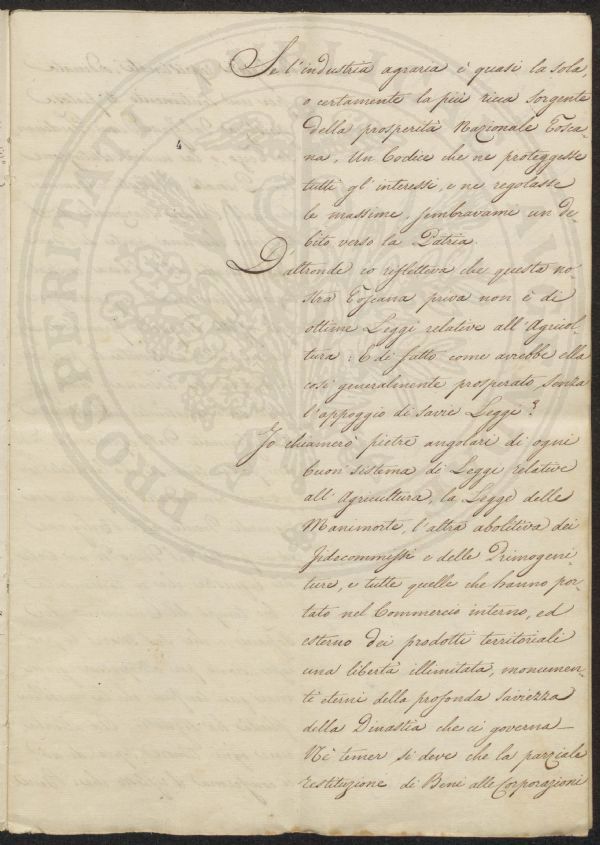 Se l'industria agraria è quasi la sola,
o certamente la più ricca sorgente
della prosperità Nazionale Tosca-
na, Un Codice che ne proteggesse
tutti gl'interessi, e ne regolasse
le massime, sembravami un de-
bito verso la Patria.
D'altronde io riflettiva che questa no-
stra Toscana priva non è di
ottime Leggi relative all'Agricol-
tura: E di fatto come avrebbe ella
così generalmente prosperato senza
l'appoggio di savie Leggi?
Io chiamerò pietre angolari di ogni
buon sistema di Leggi relative
all'Agricultura, la Legge delle
Manimorte, l'altra abolitiva dei
Fidecommissi e delle Primogeni-
ture, e tutte quelle che hanno por-
tato nel Commercio interno, ed
esterno dei prodotti territoriali
una libertà illimitata, monumen-
ti eterni della profonda saviezza
della Dinastia che ci governa—
Nè temer si deve che la parziale
restituzione di Beni alle Corporazioni
4
PROSPERITATI